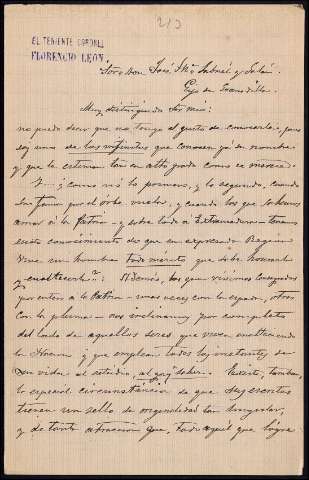 213
EL TENIENTE CORONEL
FLORENCIO LEÓN.
Señor Don José Mª Gabriel y Galán.
Guijo de Granadilla.
Muy distinguido Sr. mio:
no puedo decir que no tengo el gusto de conocerle, pues
soy uno de los infinitos que conocen ya su nombre
y que le estiman tan en alto grado como se merece.
Y ¿como no lo primero, y lo segundo, cuando
su fama por el órbe vuela, y cuando los que sabemos
amar á la Patria y sobre todo á Extremadura tenemos
exacto conocimiento de que en expresada Region
vive un hombre todo mérito que debe honrarla
y enaltecerla?: Además, los que vivimos consagrados
por entero á la Patria unas veces con la espada, otras
con la pluma nos inclinamos por completo
del lado de aquellos seres que viven enalteciendo
la Nacion y que emplean todos los instantes de
su vida al estudio, al saber. Existe, tambien,
la especial circunstancia de que sus escritos
tienen un sello de originalidad tan singular,
y de tanta atraccion que, todo aquel que logra